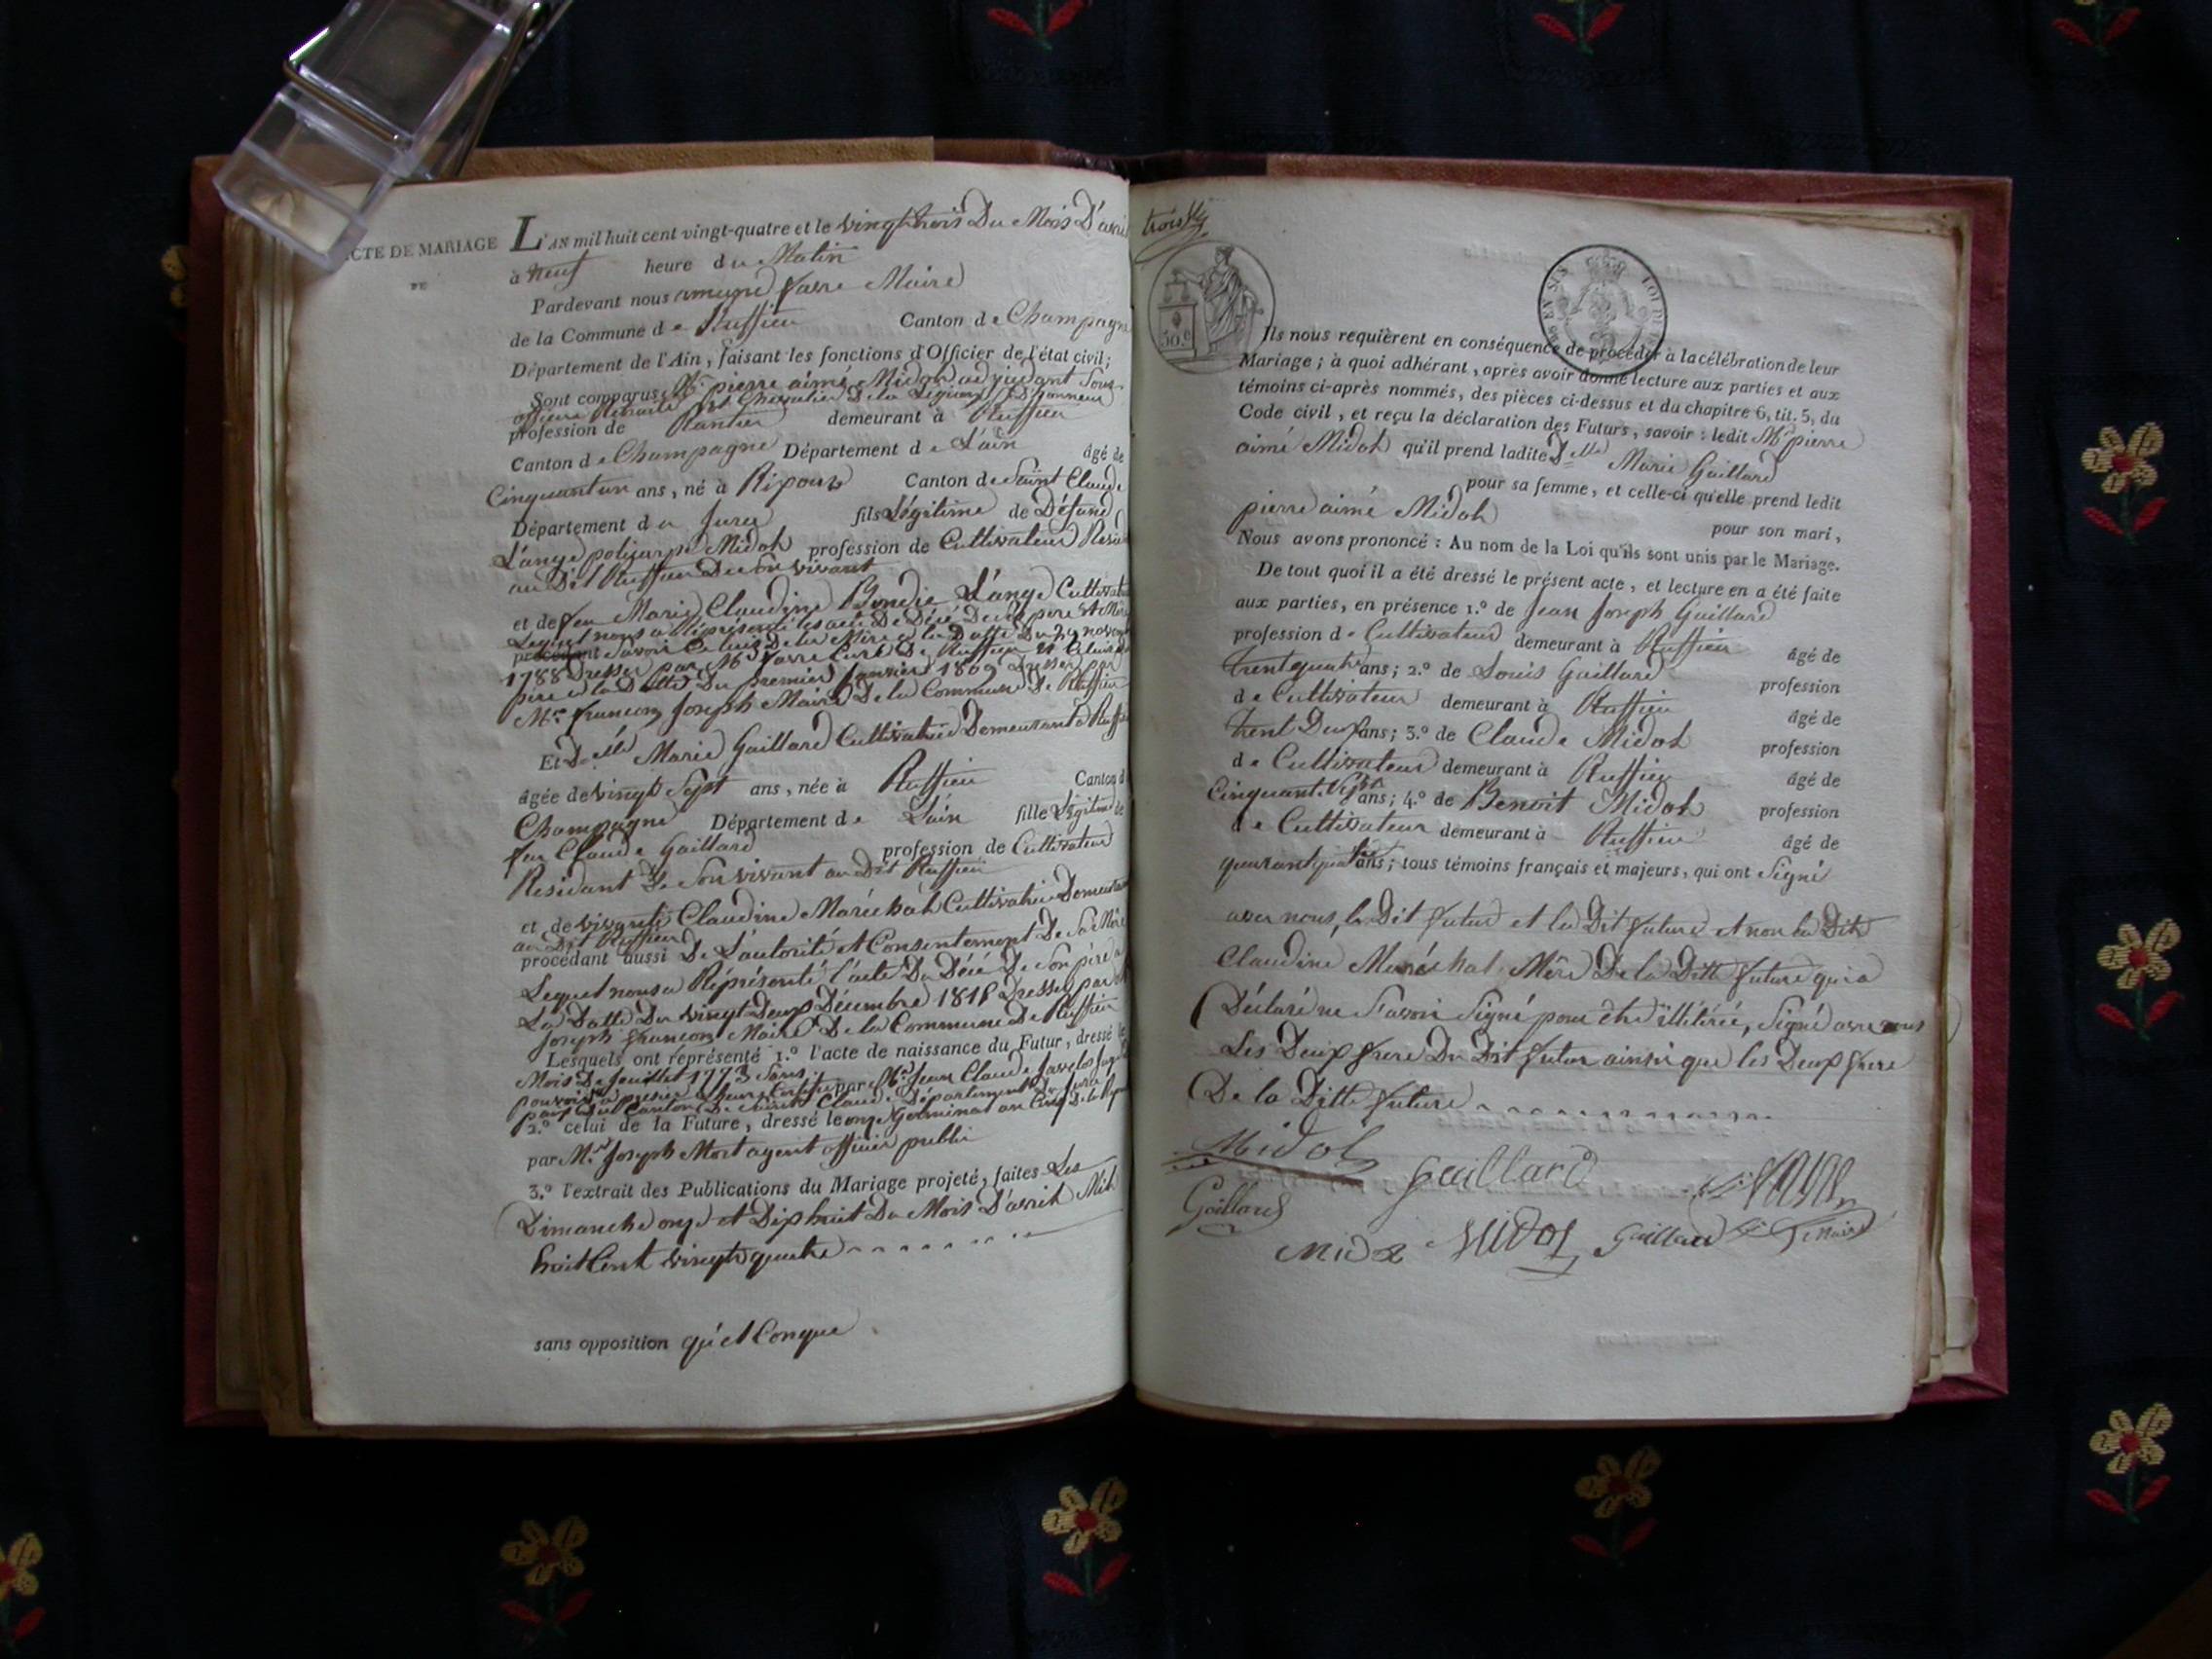 ACTE DE MARIAGE
DE
L'AN mil huit cent vingt-quatre et le vingt trois Du Mois D'avril
à neuf heure du Matin
Pardevant nous favre Maire
de la Commune de Ruffieu Canton de Champagne
Département de l'Ain, faisant les fonctions d'Officier de l'état civil;
Sont comparus Mr. pierre aimé Midol adjudant Sous
officier Retraité et Chevalier De la Légion D'honneur
profession de Rantier demeurant à Ruffieu
Canton de Champagne Département de L'ain âgé de
Cinquant un ans, né à Ripour Canton de Saint Claude
Département du Jura fils Légitime de Défund
L'ange policarpe Midol profession de Cultivateur
au Dit Ruffieu De Son vivant
et de feu Marie Claudine L'ange Cultivat
Lequel nous a Réprésenté De père et Mère
procédant Savoir Celui De la Mère a la Datte Du 29 nov
1788 Dresser par Mr favre Curé De Ruffieu et Celui du
père a la Datte Du premier Janvier 1809 Dresser par
Mr. francon Joseph Maire De la Commune De Ruffieu
Et Delle Marie Gaillard Cultivatrice Demeurant à Ruffieu
âgée de vingt Sept ans, née à Ruffieu Canton d
Champagne Département de L'ain fille Légitime de
feu Claude Gaillard profession de Cultivateur
Résidant De Son vivant au Dit Ruffieu
et de vivante Claudine Maréchal Cultivatrice Demeurant
au Dit Ruffieu
procédant aussi De L'autorité et Consentement De Sa Mère
Lequel nous a Réprésenté l'acte Du Décé De Son père a
La Datte Du vingt Deux Décembre 1818 Dresser par Mr
Joseph francon Maire De la Commune De Ruffieu
Lesquels ont représenté 1.° l'acte de naissance du Futur, dressé le
Mois De Jouillet 1773 Sans
pouvoir par Mr Jean Claude Javelot Juge
paix Du Canton De Saint Claude Département Du Jura
2.° celui de la Future, dressé le onze Germinal an Cinq De la Répu
par Mr. Joseph Mort agent officier public
3.° l'extrait des Publications du Mariage projeté, faites Les
Dimanche onze et Dix huit Du Mois D'avril Mil
huit Cent vingt quatre
sans opposition qu'el Conque
trois
30.c
EN SUS
Ils nous requièrent en conséquence de procéder à la célébration de leur
Mariage; à quoi adhérant, après avoir donné lecture aux parties et aux
témoins ci-après nommés, des pièces ci-dessus et du chapitre 6, tit. 5, du
Code civil, et reçu la déclaration des Futurs, savoir: ledit Mr pierre
aimé Midol qu'il prend ladite Delle Marie Gaillard
pour sa femme, et celle-ci qu'elle prend ledit
pierre aimé Midol pour son mari,
Nous avons prononcé: Au nom de la Loi qu'ils sont unis par le Mariage.
De tout quoi il a été dressé le présent acte, et lecture en a été faite
aux parties, en présence 1.° de Jean Joseph Gaillard
profession de Cultivateur demeurant à Ruffieu âgé de
trent quatre ans; 2.° de Louis Gaillard profession
de Cultivateur demeurant à Ruffieu âgé de
trent Deux ans; 3.° de Claude Midol profession
de Cultivateur demeurant à Ruffieu âgé de
Cinquant Sept ans; 4.° de Benoit Midol profession
de Cultivateur demeurant à Ruffieu âgé de
quarant quatre ans; tous témoins français et majeurs, qui ont Signé
avec nous, le Dit futur et la Dit future et non la Ditte
Claudine Maréchal Mère De la Ditte future qui a
Déclaré ne Savoir Signé pour être illétérée, Signé avec nous
Les Deux frere Du Dit futur ainsi que les Deux frere
De la Ditte future
Midol Gaillard
Gaillard
Midol Midol Gaillard Maire